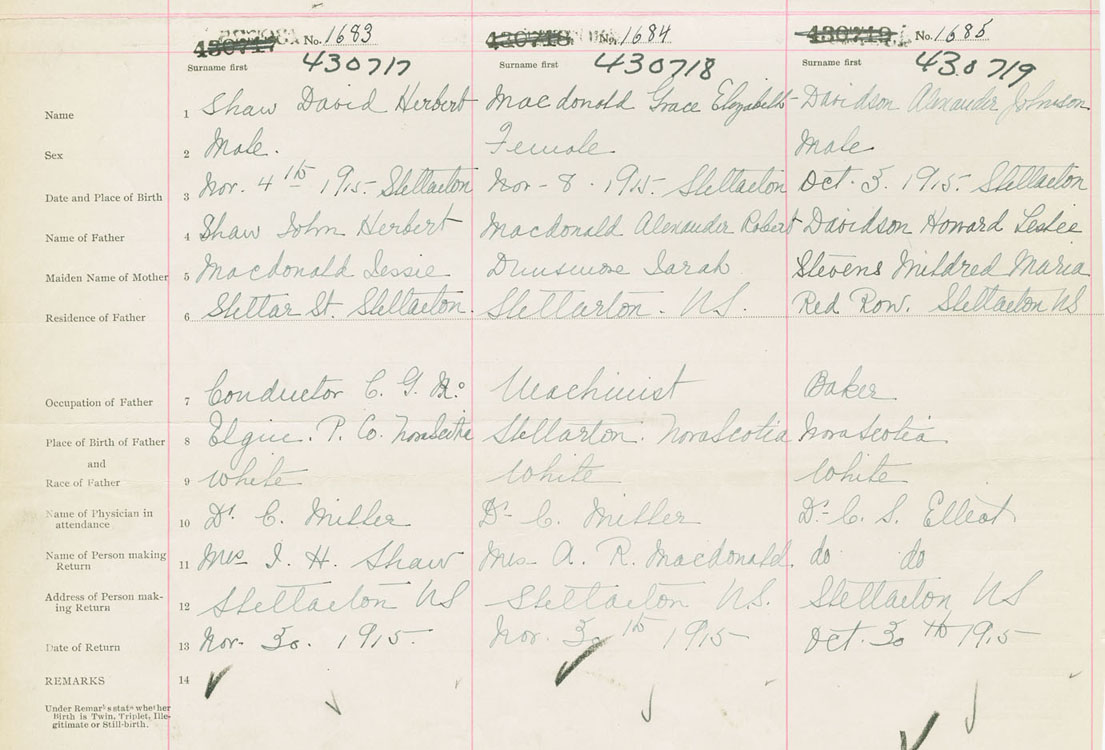 430717 No. 1683 430718 No. 1684 430719 No. 1685
Surname first 430717 Surname first 430718 Surname first 430719
Name 1 Shaw David Herbert Macdonald Grace Elizabeth Davidson Alexander Johnson
Sex 2 Male. Female Male
Date and Place of Birth 3 Nov. 4th 1915. Stellarton Nov - 8. 1915. Stellarton Oct. 3. 1915. Stellarton
Name of Father 4 Shaw John Herbert Macdonald Alexander Robert Davidson Howard Leslie
Maiden Name of Mother 5 Macdonald Jessie Dunsmore Sarah Stevens Mildred Maria
Residence of Father 6 Stellar St. Stellarton. Stellarton. NS. Red Row. Stellarton NS
Occupation of Father 7 Conductor C. G. R. Machinist Baker
Place of Birth of Father 8 Elgin. P. Co. Nova Scotia Stellarton. Nova Scotia Nova Scotia
and
Race of Father 9 White White White
Name of Physician in
attendance 10 Dr. C. Miller Dr. C. Miller Dr. C. S. Elliot
Name of Person making
Return 11 Mrs J. H. Shaw Mrs A. R. Macdonald. do do
Address of Person mak-
ing Return 12 Stellarton NS Stellarton N.S. Stellarton NS
Date of Return 13 Nov. 30. 1915 Nov. 30th 1915 Oct. 30th 1915
REMARKS 14
Under Remarks state whether
Birth is Twin, Triplet, Ille-
gitimate or Still-birth.